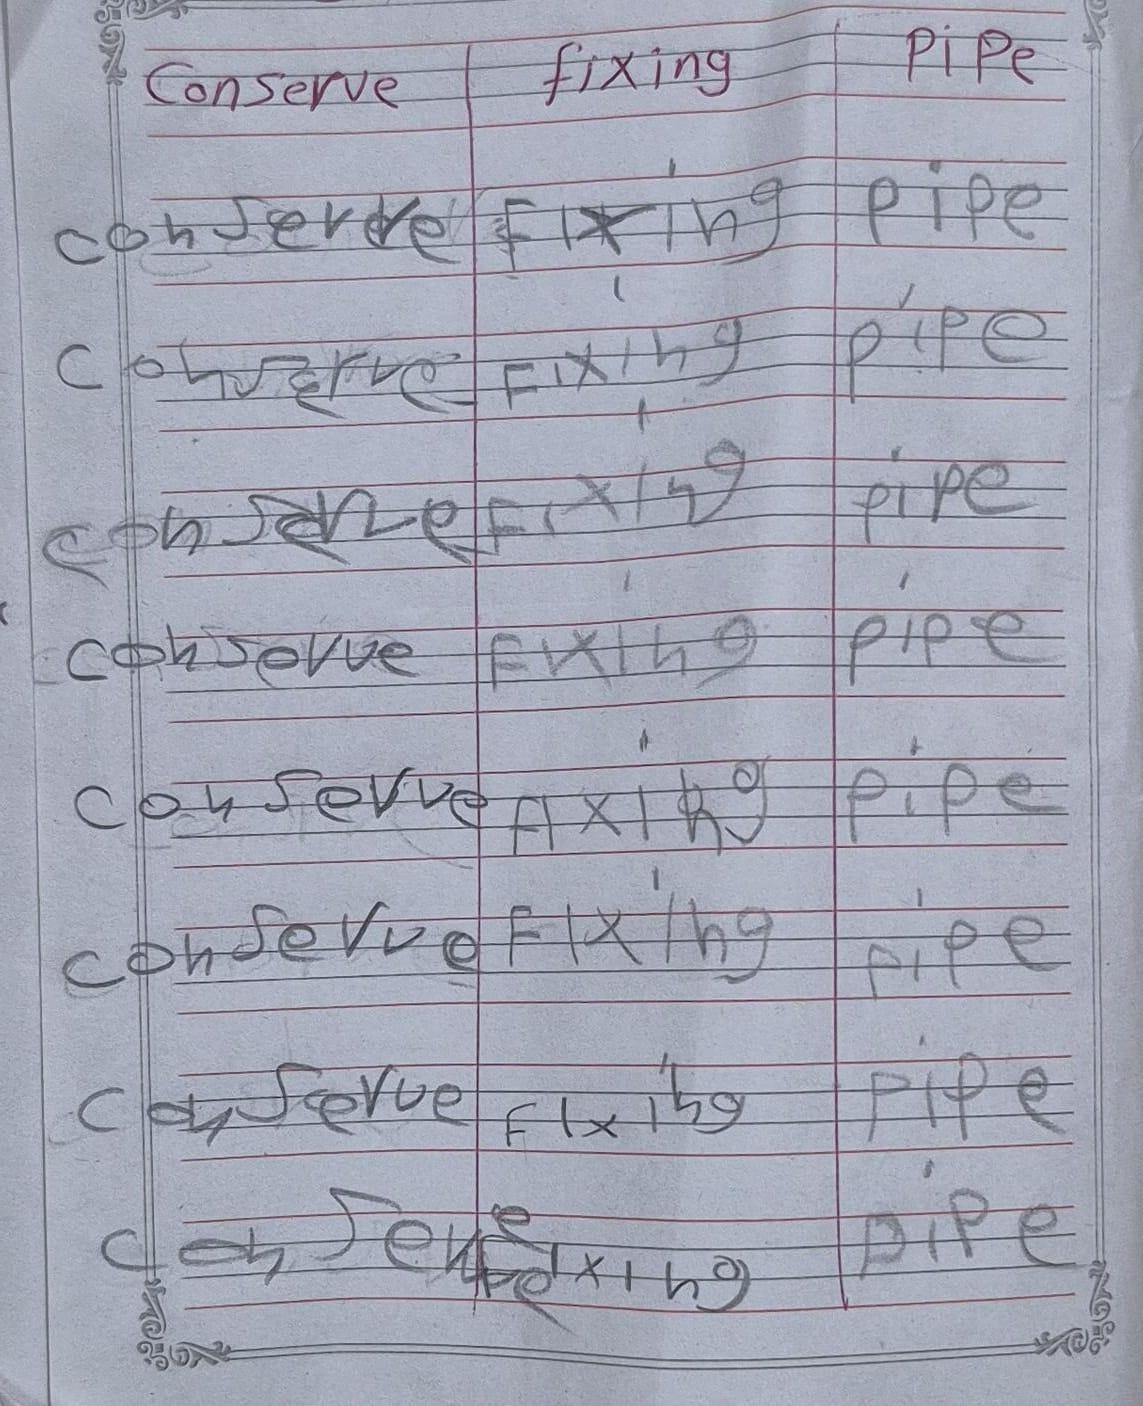 Conserve fixing Pipe
conserve Fixing pipe
conserve Fixing pipe
conserve Fixing pipe
conserve Fixing pipe
conserve Fixing pipe
conserve Fixing pipe
conserve Fixing pipe
conserve Fixing pipe